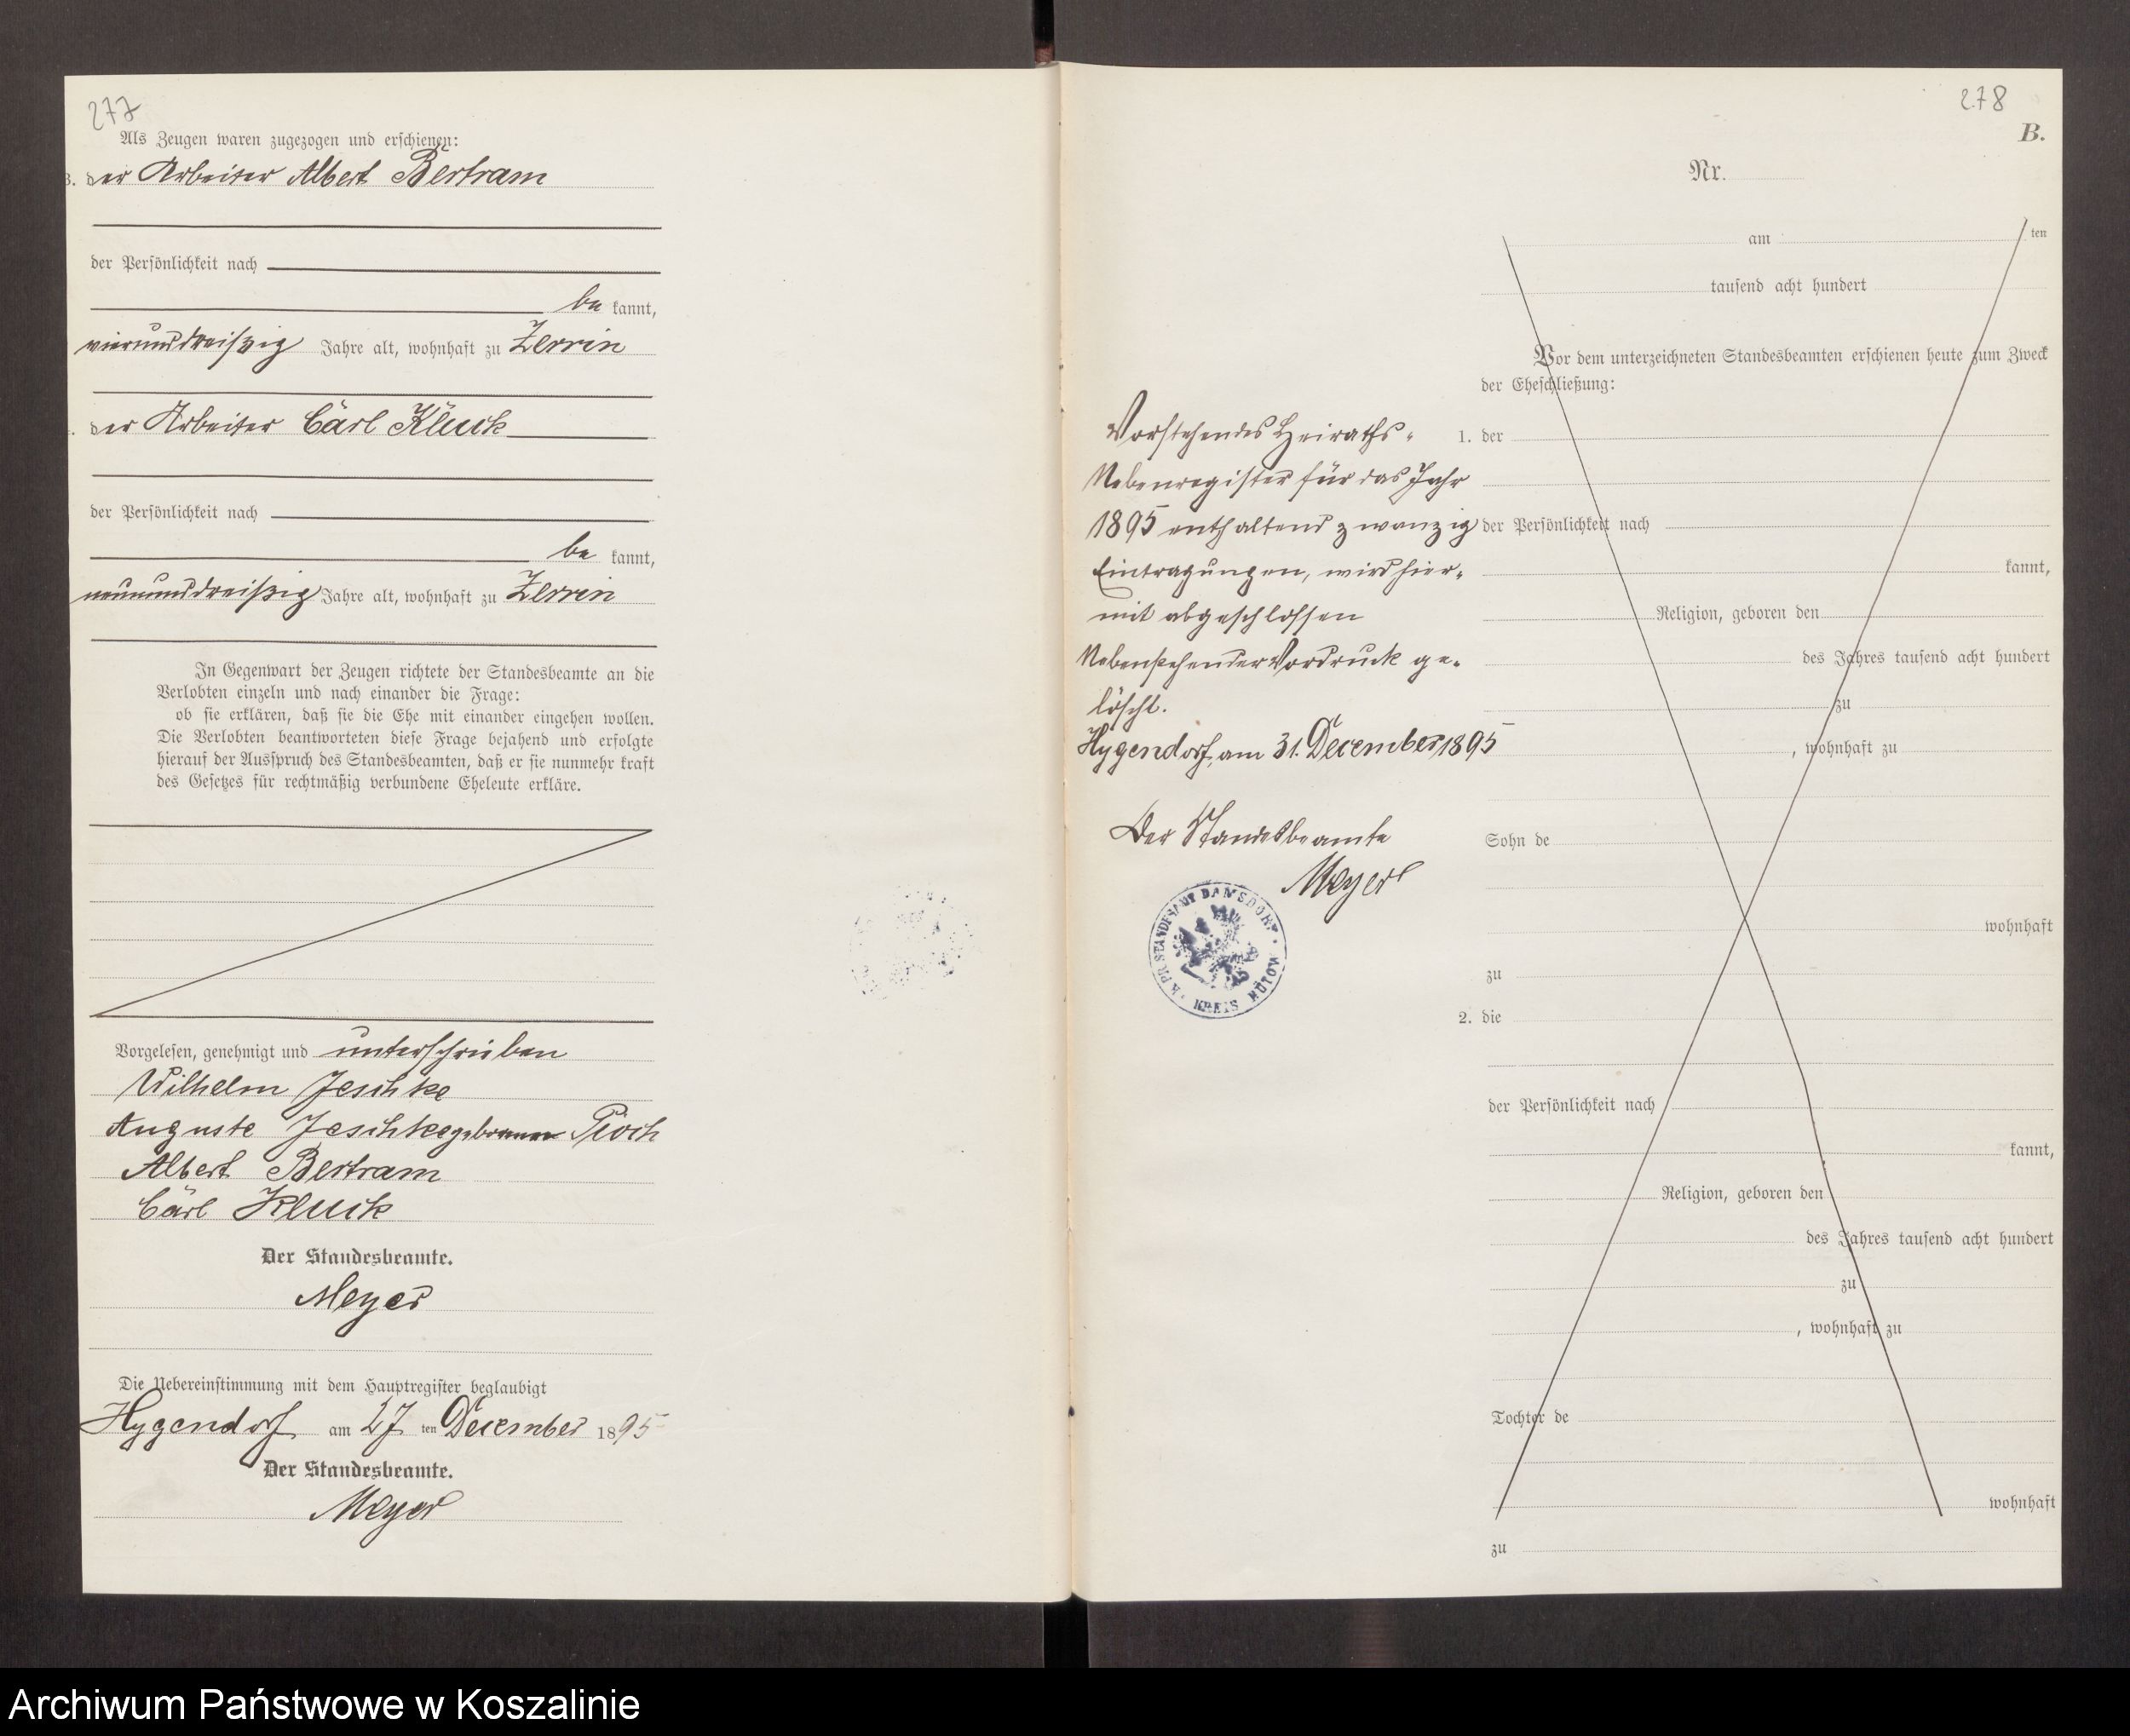 277
Als Zeugen waren zugezogen und erschienen:
3. der Arbeiter Albert Bertram
der Persönlichkeit nach
be kannt,
vierunddreißig Jahre alt, wohnhaft zu Zerrin
der Arbeiter Carl Kluck
der Persönlichkeit nach
be kannt,
neununddreißig Jahre alt, wohnhaft zu Zerrin
In Gegenwart der Zeugen richtete der Standesbeamte an die
Verlobten einzeln und nach einander die Frage:
ob sie erklären, daß sie die Ehe mit einander eingehen wollen.
Die Verlobten beantworteten diese Frage bejahend und erfolgte
hierauf der Ausspruch des Standesbeamten, daß er sie nunmehr kraft
des Gesetzes für rechtmäßig verbundene Eheleute erkläre.
Vorgelesen, genehmigt und unterschrieben
Wilhelm Jeschke
Auguste Jeschke geborene Pioch
Albert Bertram
Carl Kluck
Der Standesbeamte.
Meyer
Die Uebereinstimmung mit dem Hauptregister beglaubigt
Hygendorf am 27 ten December 1895
Der Standesbeamte.
Meyer
278
B.
Nr.
am ten
tausend acht hundert
Vor dem unterzeichneten Standesbeamten erschienen heute zum Zweck
der Eheschließung:
1. der
der Persönlichkeit nach
kannt,
Religion, geboren den
des Jahres tausend acht hundert
zu
, wohnhaft zu
Sohn de
wohnhaft
zu
2. die
der Persönlichkeit nach
kannt,
Religion, geboren den
des Jahres tausend acht hundert
zu
, wohnhaft zu
Tochter de
wohnhaft
zu
Vorstehendes Heiraths-
Nebenregister für das Jahr
1895 enthaltend zwanzig
Eintragungen, wird hier-
mit abgeschlossen
Nebenstehender Vordruck ge-
löscht.
Hygendorf, am 31. December 1895
Der Standesbeamte
Meyer
K. PR. STANDESAMT DAMSDORF · KREIS BÜTOW
Archiwum Państwowe w Koszalinie